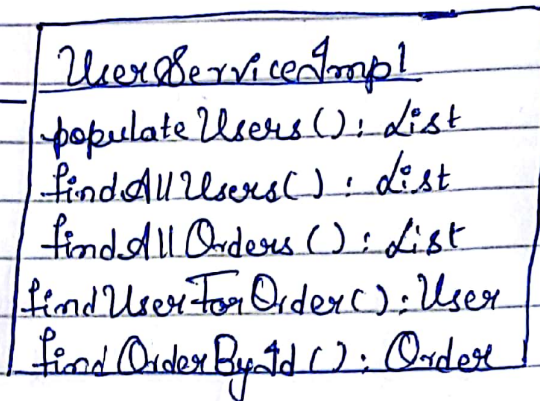 UserServiceImpl
populateUsers(): List
findAllUsers(): List
findAllOrders(): List
findUserForOrder(): User
findOrderById(): Order